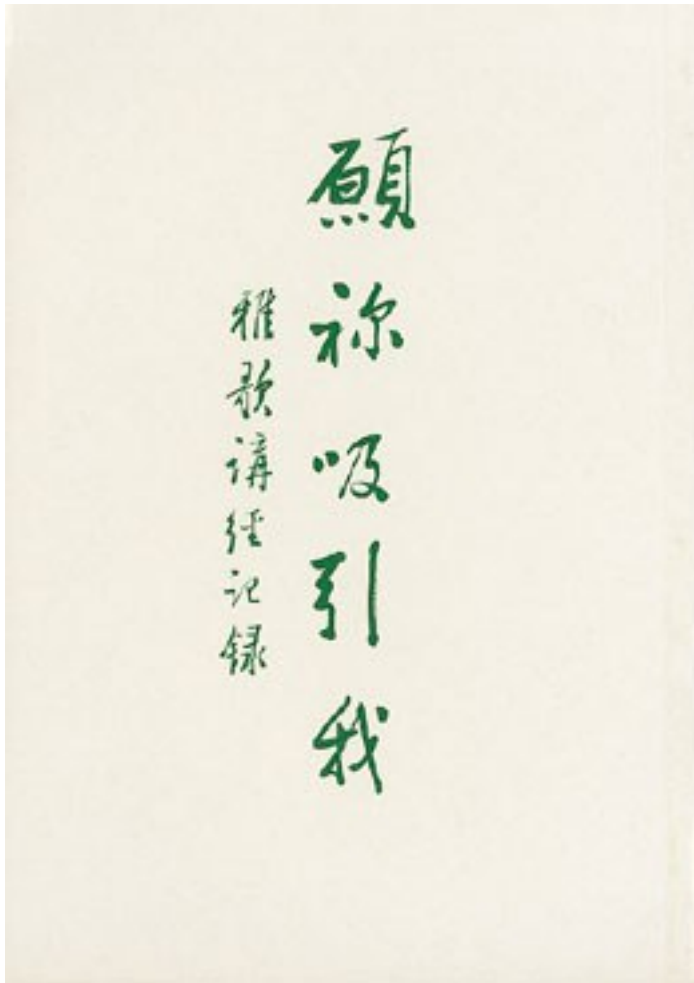 願祢吸引我
雅歌講經記録